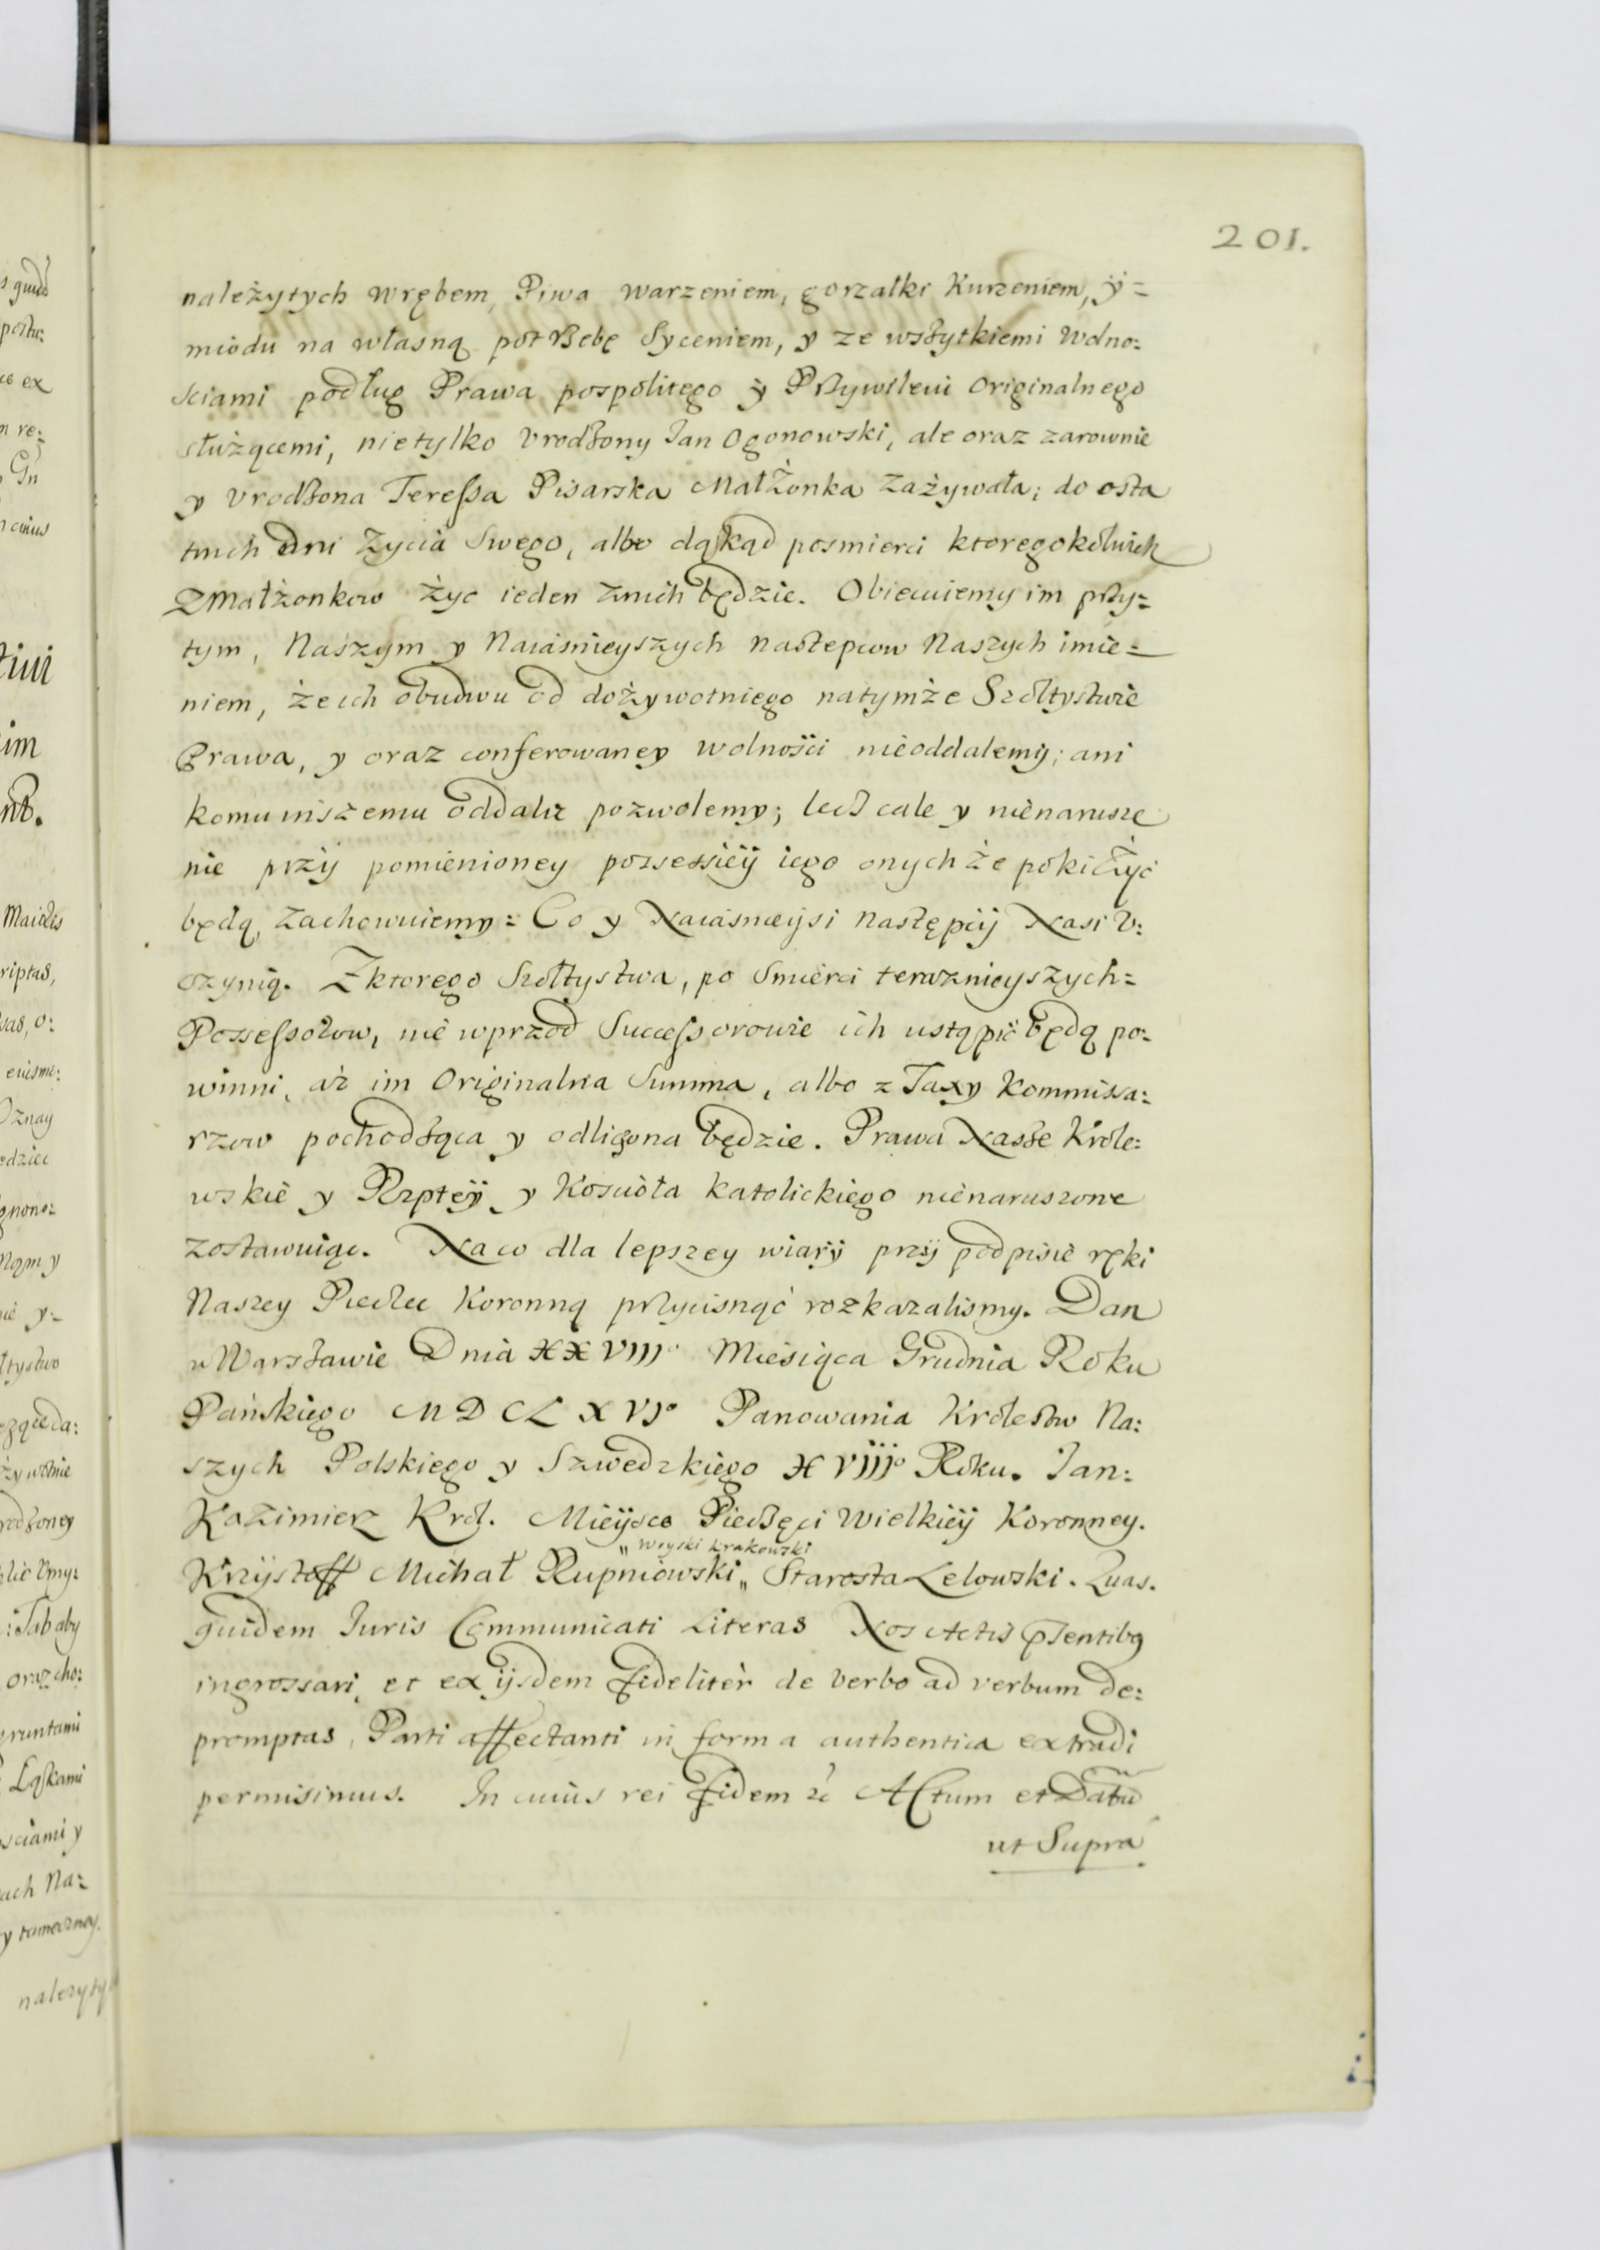 201.
należytych wrębem, Piwa warzeniem, gorzałki Kurzeniem, ÿ=
miodu na własną potrzebę Syceniem, y ze wszytkiemi Wolno:
sciami podług Prawa pospolitego ÿ Przywileiu Originalnego
służącemi, nietylko Vrodzony Jan Ogonowski, ale oraz zarownie
y Vrodzona Teressa Pisarska Małżonka zażywała; do osta
tnich dni Zycia Swego, albo dąkąd posmierci ktoregokolwiek
Zmałżonkow żyć ieden znich będzie. Obiecuiemy im przy=
tym, Naszym y Naiaśnieyszych nastepcow Naszych imie=
niem, że ich obudwu od dożywotniego natymże Szołtystwie
Prawa, y oraz conferowaney wolności nieoddalemy; ani
komu inszemu oddalić pozwolemy; lecz cale y nienarusze
nie przÿ pomienioney possessiëÿ iego onychże poki żyć
będą, zachowuiemy= Co y Naiaśnieÿsi Następcÿ Nasi V:
czynią. Z ktorego Szołtystwa, po Smierci teraznieyszych=
Possessorow, nie wprzod Successorowie ich ustąpić będą po:
winni, aż im Originalna Summa, albo z Taxy Kommissa:
rzow pochodząca y odliczona będzie. Prawa Nasze Krole:
wskie y Rzptëÿ y Kosciòła katolickiego nienaruszone
zostawuiąc. Na co dla lepszey wiarÿ przÿ podpisie ręki
Naszey Pieczec Koronną przycisnąć rozkazalismy. Dan
w Warszawie Dnia XXVIIIº Miesiąca Grudnia Roku
Pańskiego MDCLXVIº Panowania Krolestw Na:
szych Polskiego y Szwedzkiego XVIIIº Roku. Jan:
Kazimierz Krol. Mieÿsce Pieczęci Wielkiëÿ Koronney.
„ Woyski Krakowski
Krzÿstoff Michał Rupniowski „ Starosta Lelowski. Quas.
quidem Juris Communicati Literas Nos Actis psentibg
ingrossari, et ex ijsdem fideliter de verbo ad verbum de:
promptas, Parti affectanti in forma authentica extradi
permisimus. In cuius rei fidem Actum et Datū
ut Supra